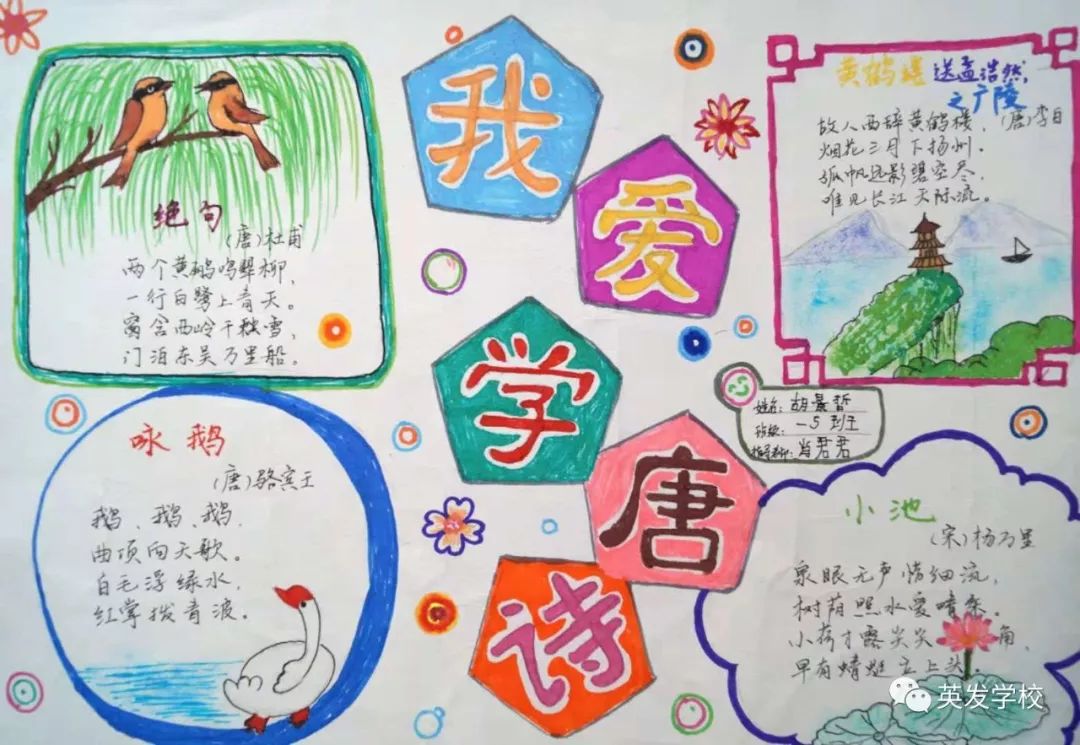 我
爱
学
唐
诗
绝句
(唐)杜甫
两个黄鹂鸣翠柳,
一行白鹭上青天。
窗含西岭千秋雪,
门泊东吴万里船。
黄鹤楼送孟浩然
之广陵
(唐)李白
故人西辞黄鹤楼,
烟花三月下扬州。
孤帆远影碧空尽,
唯见长江天际流。
姓名:胡景哲
班级:一5班
肖君君
咏鹅
(唐)骆宾王
鹅、鹅、鹅,
曲项向天歌。
白毛浮绿水,
红掌拨青波。
小池
(宋)杨万里
泉眼无声惜细流,
树荫照水爱晴柔。
小荷才露尖尖角,
早有蜻蜓立上头。
英发学校